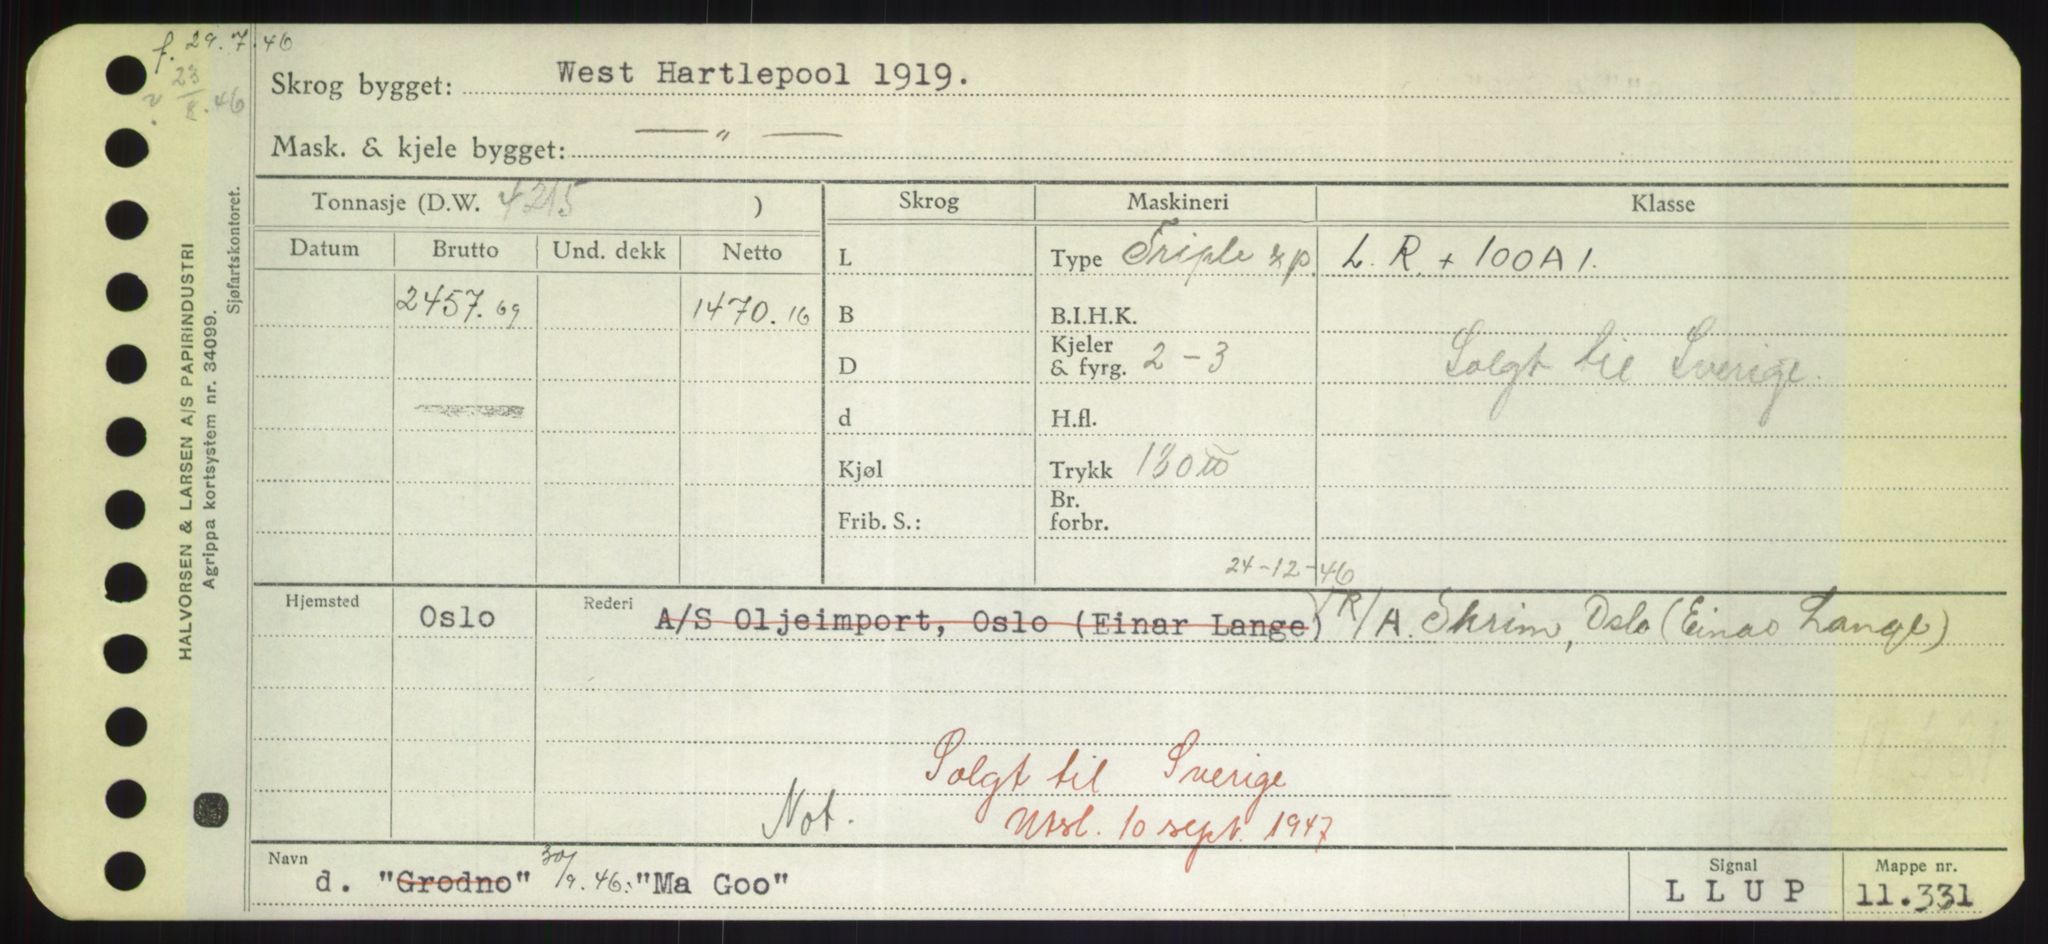 f. 29.7.46
23/8.46
Skrog bygget: West Hartlepool 1919.
Mask. & kjele bygget: — " —
HALVORSEN & LARSEN A/S PAPIRINDUSTRI
Agrippa kortsystem nr. 34099.
Sjøfartskontoret.
Tonnasje (D.W. 4215 ) Skrog Maskineri Klasse
Datum Brutto Und. dekk Netto L Type Triple xp. L. R. + 100 A 1.
2457.69 1470.16 B B.I.H.K.
D Kjeler & fyrg. 2 - 3 Solgt til Sverige.
d H.fl.
Kjøl Trykk 180
Frib. S.: Br. forbr.
24-12-46
Hjemsted Oslo Rederi A/S Oljeimport, Oslo (Einar Lange) R/A. Skrim, Oslo (Einar Lange)
Solgt til Sverige
Not. Utsl. 10 sept. 1947
Navn d. "Grodno" 30/9.46: "Ma Goo" Signal LLUP Mappe nr. 11.331